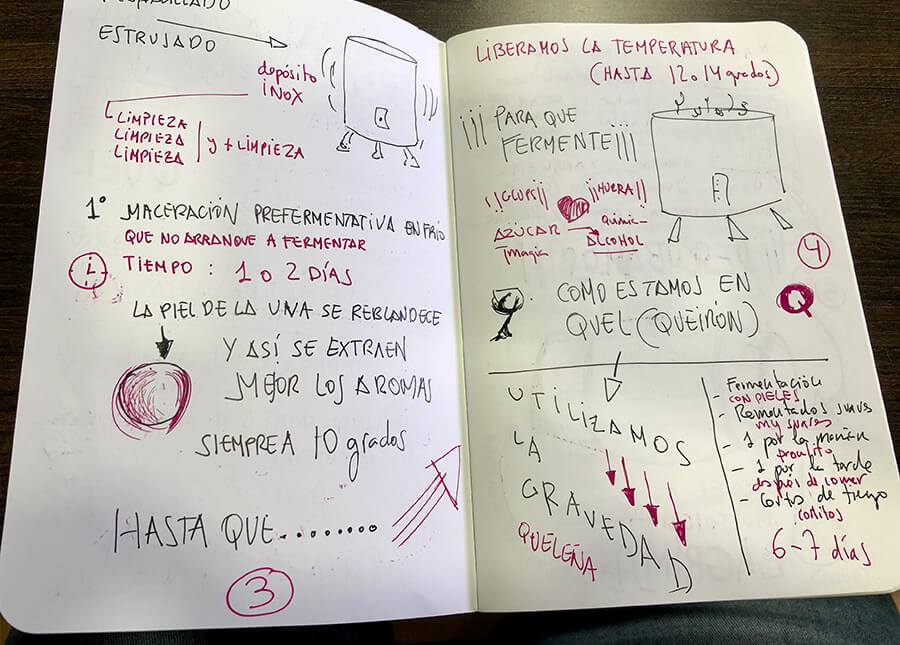 ESTRUJADO
depósito
iNOX
LIMPIEZA
LIMPIEZA
LIMPIEZA
y + LIMPIEZA
1º MACERACIÓN PREFERMENTATIVA EN FRÍO
QUE NO ARRANQUE A FERMENTAR
TIEMPO : 1 o 2 DÍAS
LA PIEL DE LA UVA SE REBLANDECE
Y ASÍ SE EXTRAEN
MEJOR LOS AROMAS
SIEMPRE A 10 grados
HASTA QUE........
3
LIBERAMOS LA TEMPERATURA
(HASTA 12 o 14 grados)
¡¡¡ PARA QUE
FERMENTE¡¡¡
¡¡GLUPS¡¡
AZUCAR
magia
ALCOHOL
4
COMO ESTAMOS EN
QUEL (QUEIRÓN)
Q
UTILIZAMOS
LA
GRAVEDAD
QUELEÑA
Fermentación
CON PIELES
- Remontados suaves
muy suaves
- 1 por la mañana
prontito
- 1 por la tarde
después de comer
- Cortos de tiempo
cortitos
6-7 días